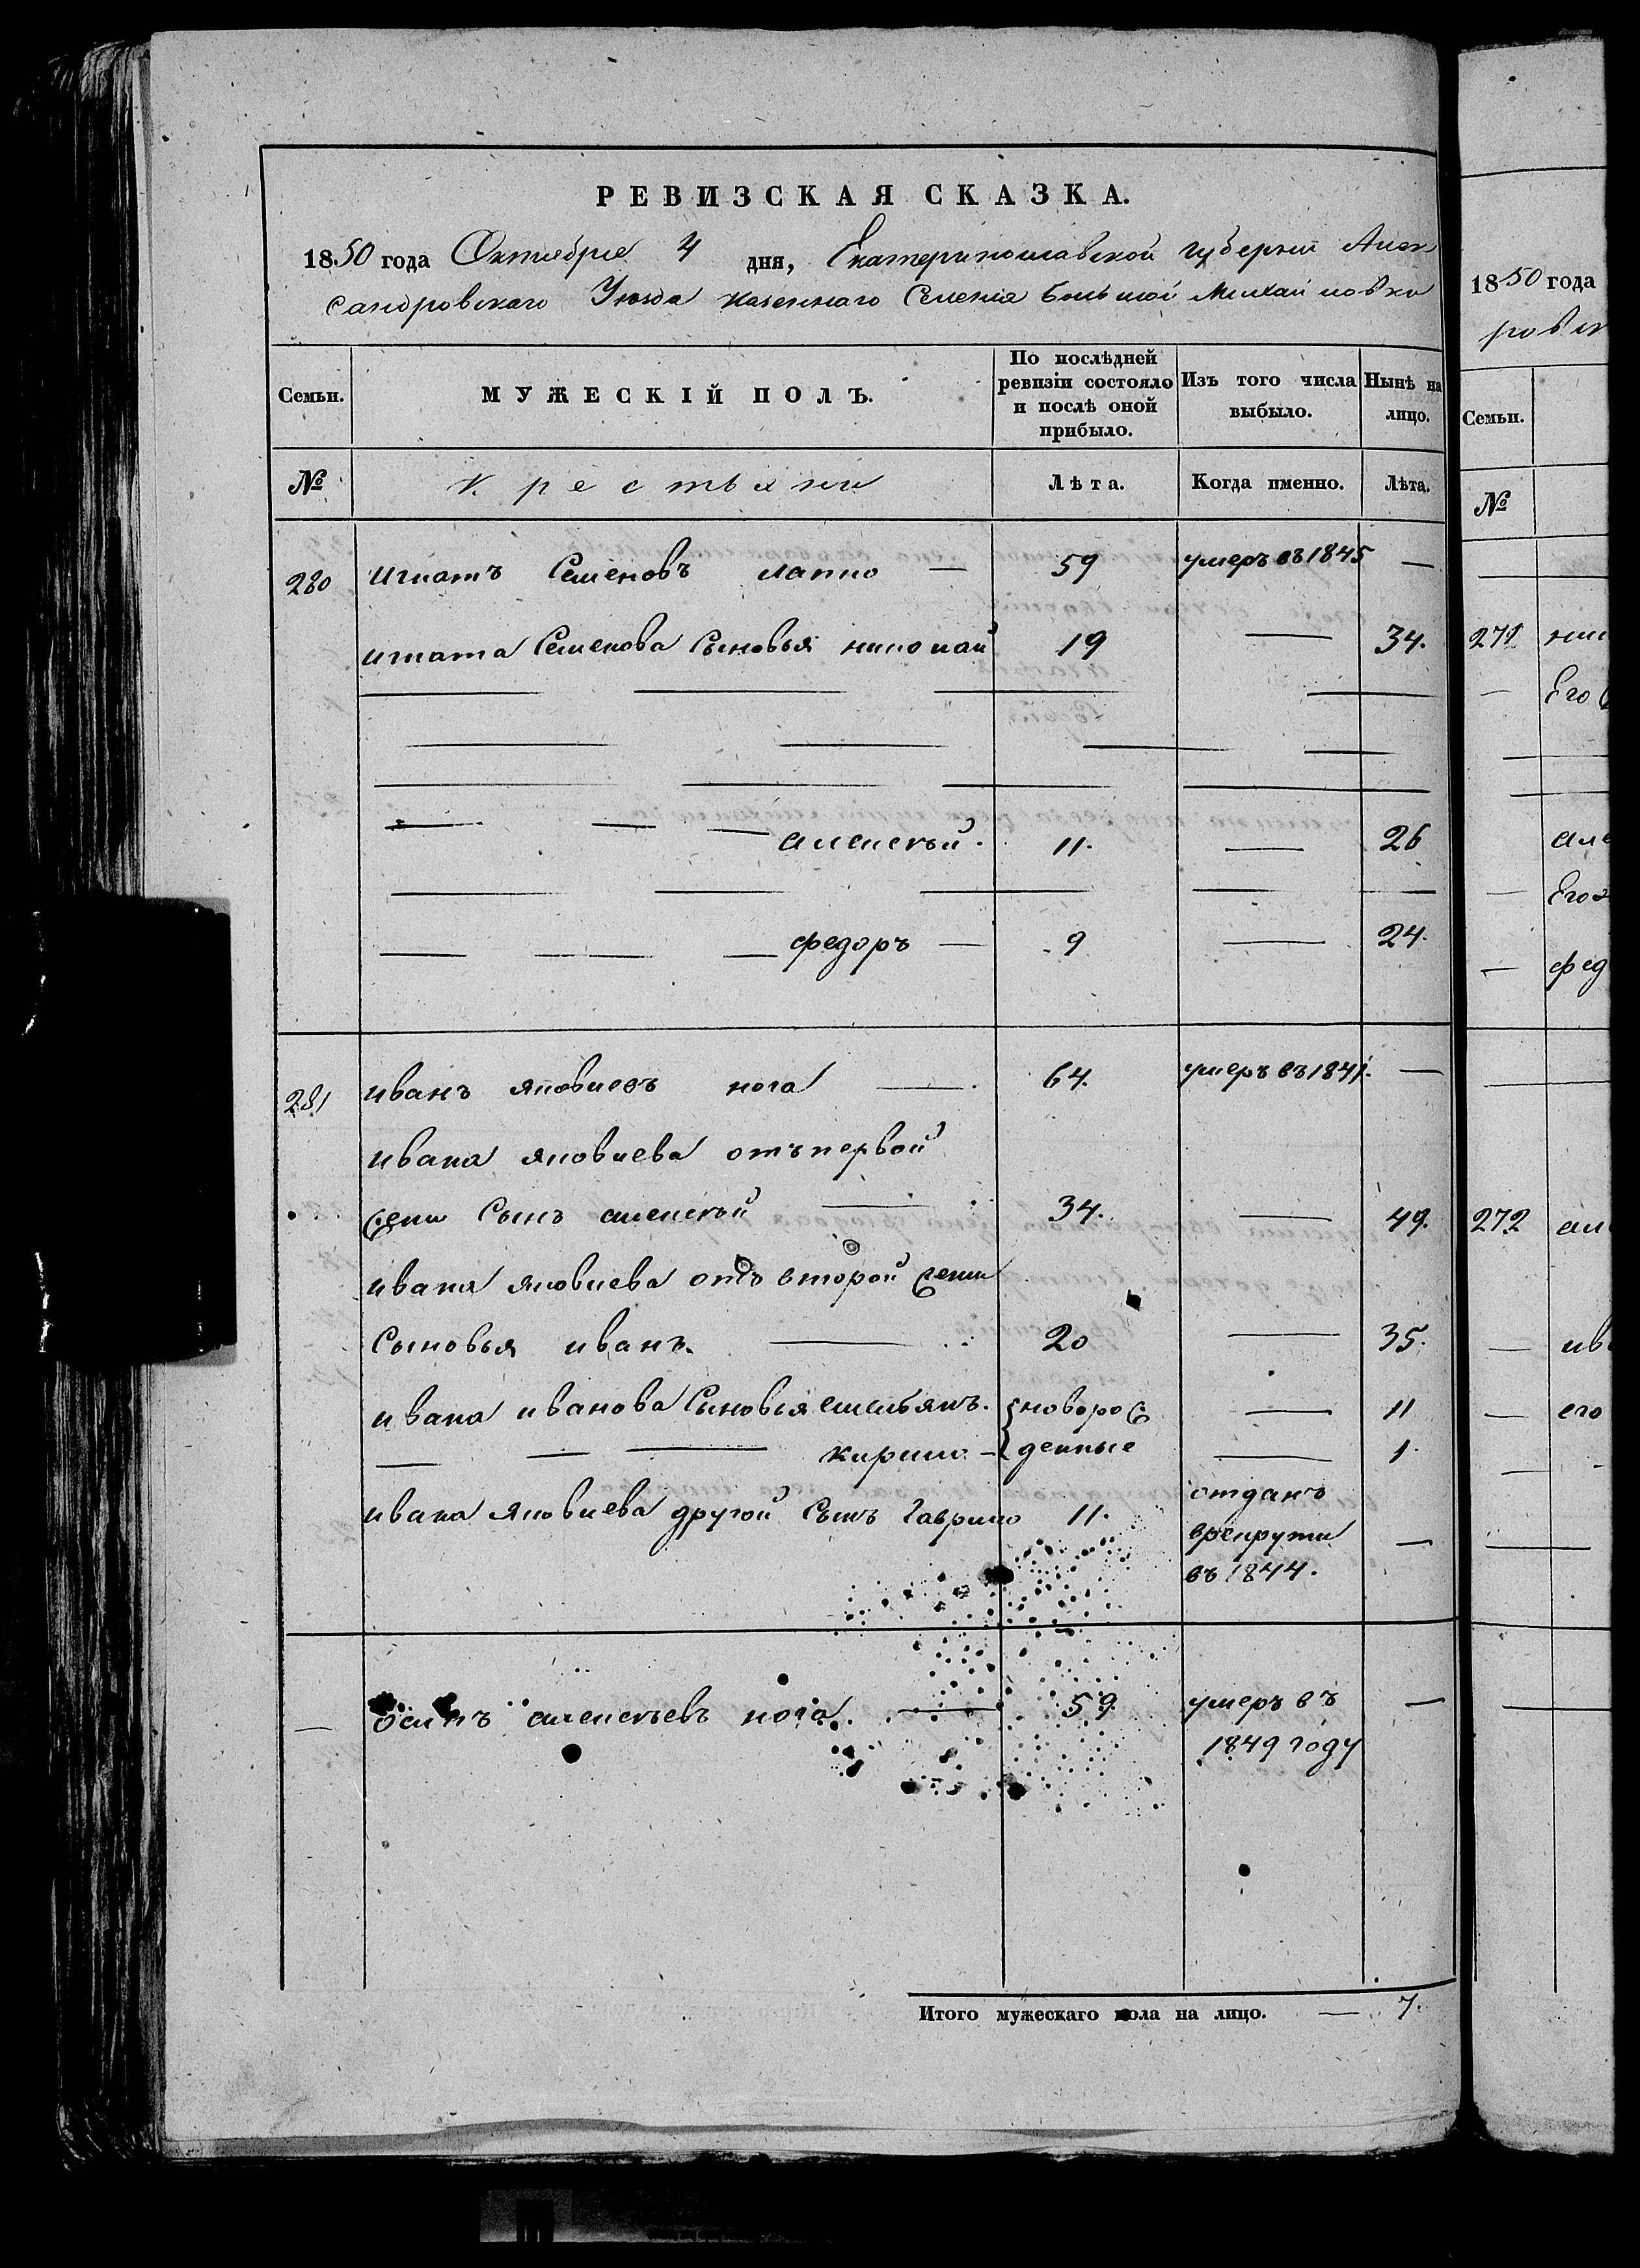 РЕВИЗСКАЯ СКАЗКА.
1850 года Октебрие 4 дня, Екатеринославской губернии Алек
сандровскаго Уезда казеннаго Селенія Большой Михайловки
Семьи. МУЖЕСКІЙ ПОЛЪ. По послѣдней ревизіи состояло и послѣ оной прибыло. Изъ того числа выбыло. Нынѣ на лицо.
№ крестьяни Лѣта. Когда именно. Лѣта.
280 Игнатъ Семеновъ лапко — 59 умеръ въ 1845 —
игната Семенова Сыновья николай 19 — 34.
— — — алексѣй. 11. — 26
— — — федоръ — 9 — 24.
281 иванъ яковлевъ нога — 64. умеръ въ 1841. —
ивана яковлева отъ первой
жены Сынъ алексѣй — 34. — 49.
ивана яковлева отъ второй жены
Сыновья иванъ. — 20 — 35.
ивана иванова Сыновья емельянъ. { новорож — 11
— — — кирило — денные — 1.
ивана яковлева другой Сынъ Гаврило 11. отданъ
врекруты —
въ 1844.
— осипъ алексѣевъ нога. — 59. умеръ въ —
1849 году
Итого мужескаго пола на лицо. — 7.
1850 года
ровск
Семьи.
№
271 ник
Его
але
Его
— фед
272 ал
— ив
— его